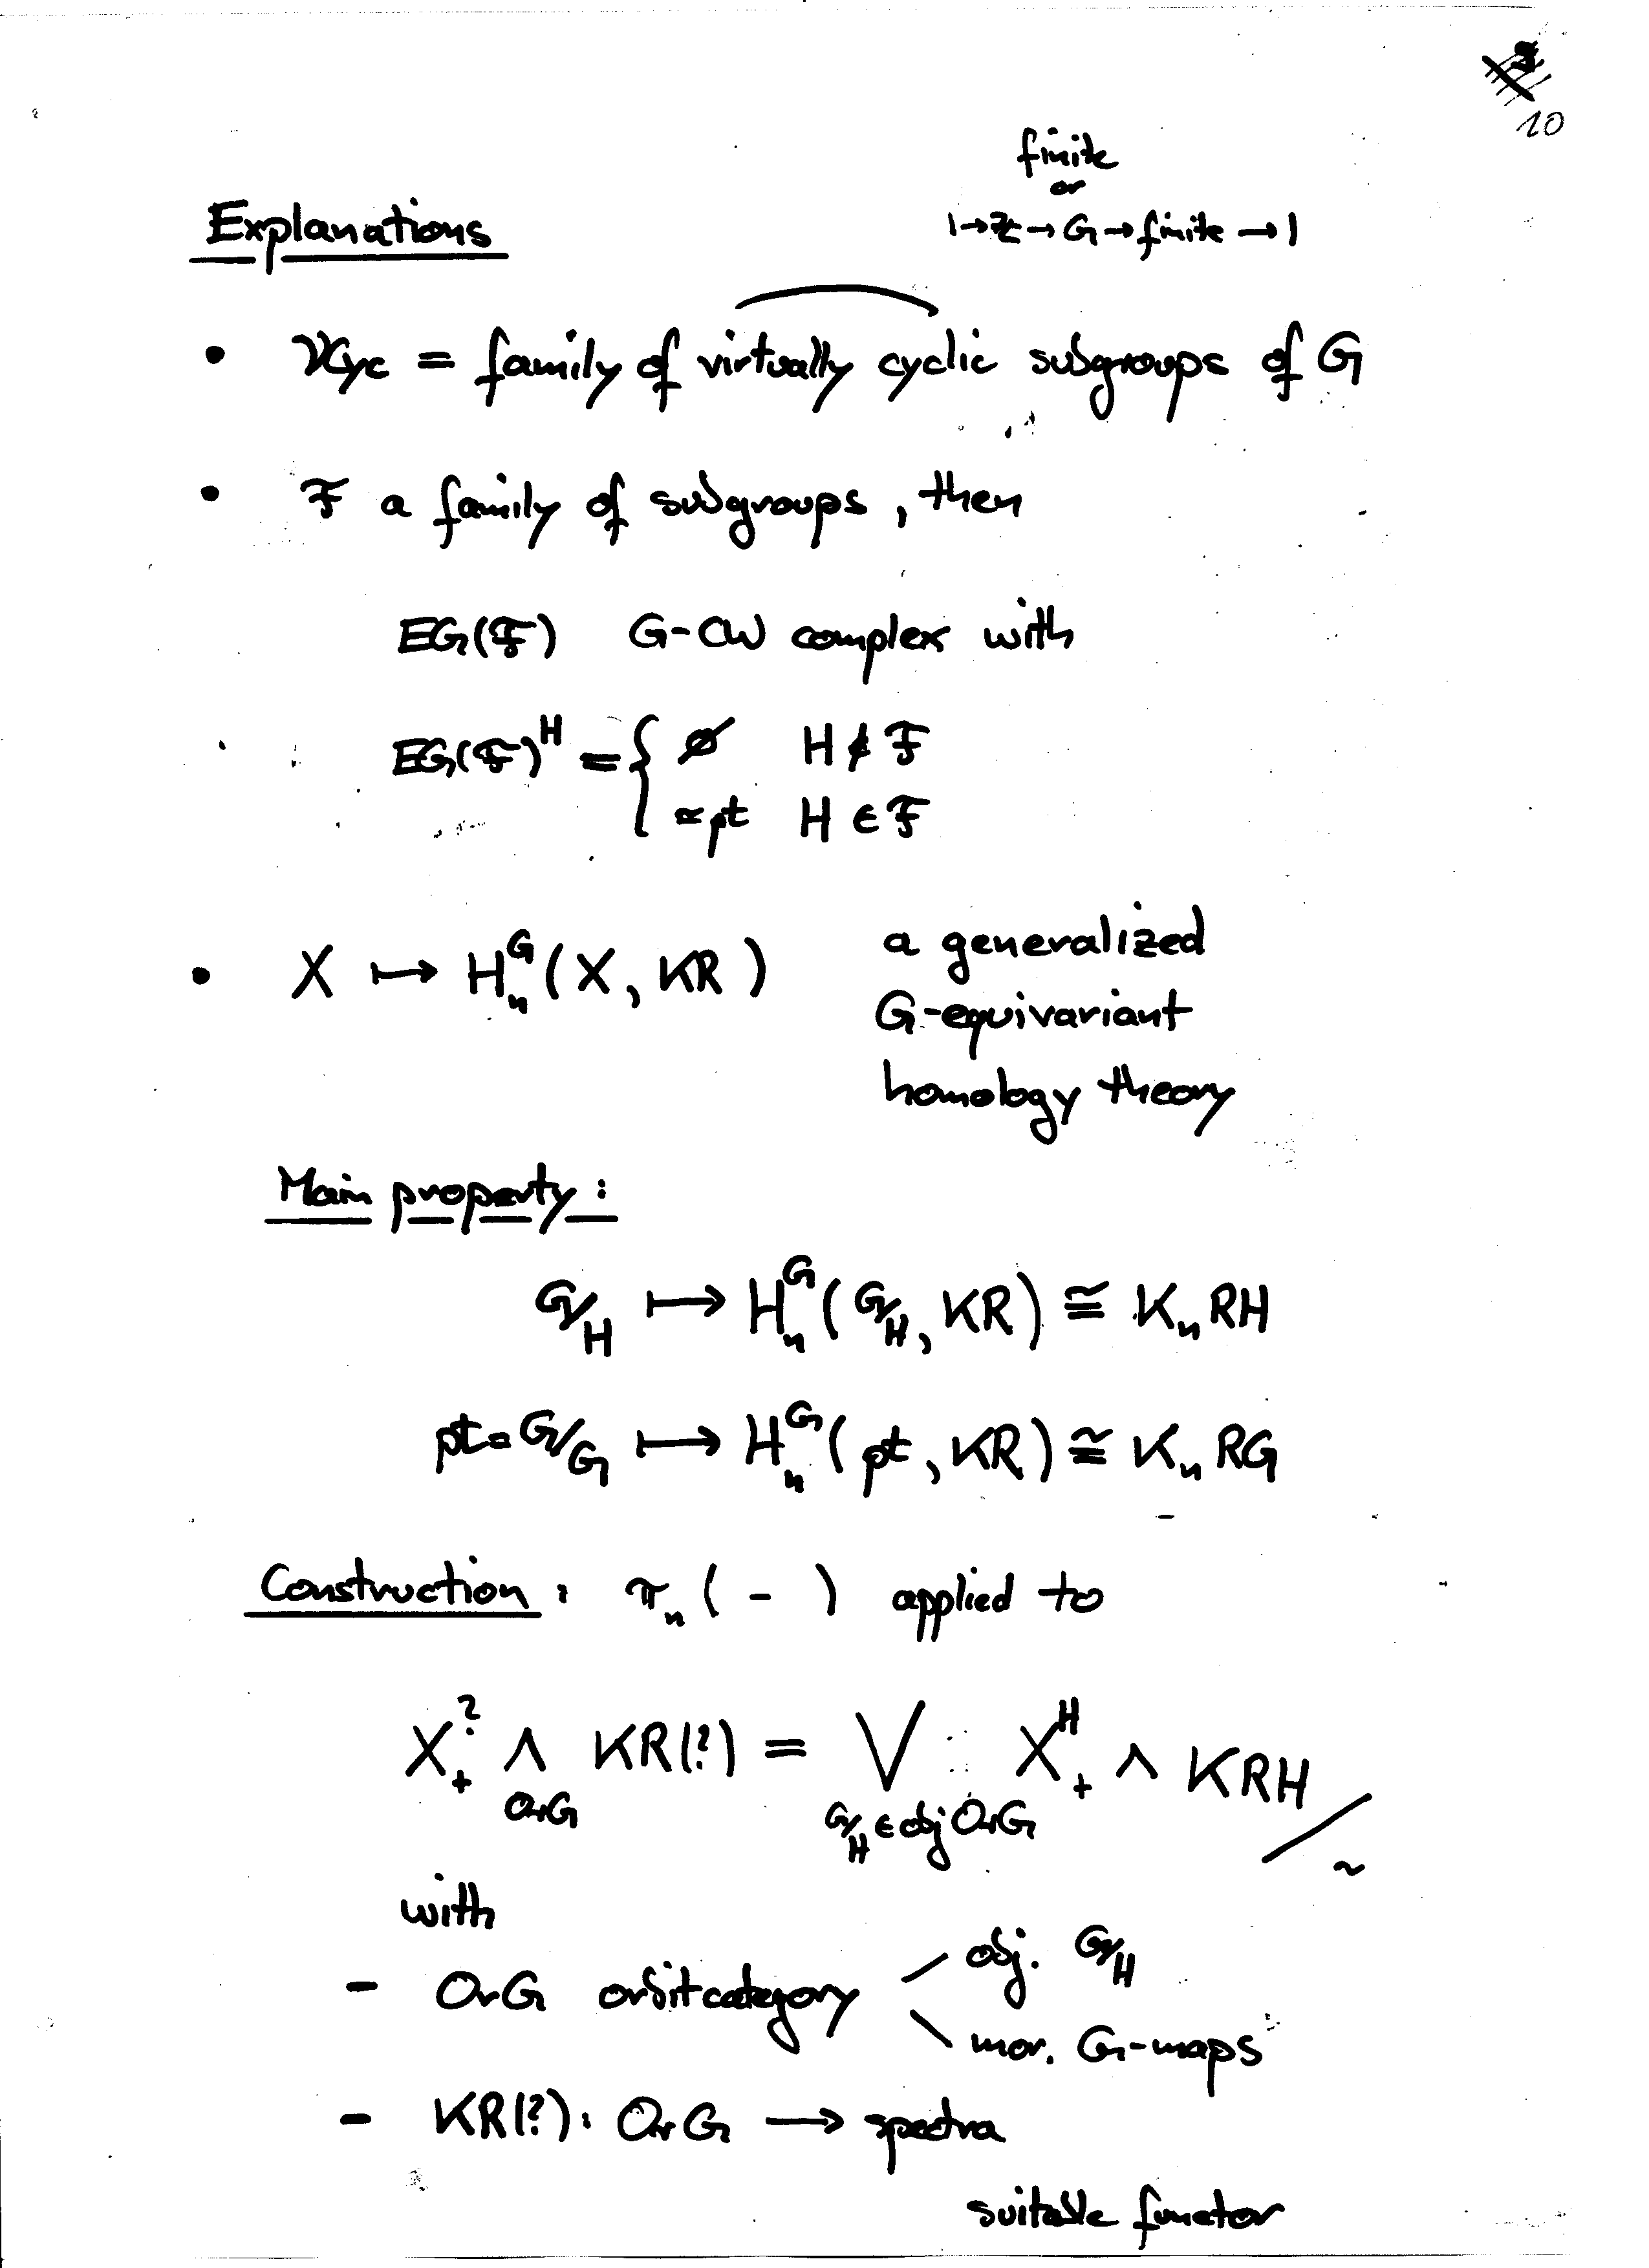 10
finite
or
1→ℤ→G→finite→1
Explanations
• VCyc = family of virtually cyclic subgroups of G
• ℱ a family of subgroups, then
EG(ℱ) G-CW complex with
EG(ℱ)^H = { ∅ H ∉ ℱ
≃pt H ∈ ℱ
• X ↦ H_n^G(X, KR) a generalized
G-equivariant
homology theory
Main property:
G/H ↦ H_n^G(G/H, KR) ≅ K_n RH
pt = G/G ↦ H_n^G(pt, KR) ≅ K_n RG
Construction: π_n( - ) applied to
X_+^? ∧_{OrG} KR(?) = ⋁_{G/H ∈ obj OrG} X_+^H ∧ KRH / ~
with
- OrG orbitcategory / obj. G/H
\ mor. G-maps
- KR(?): OrG → spectra
suitable functor